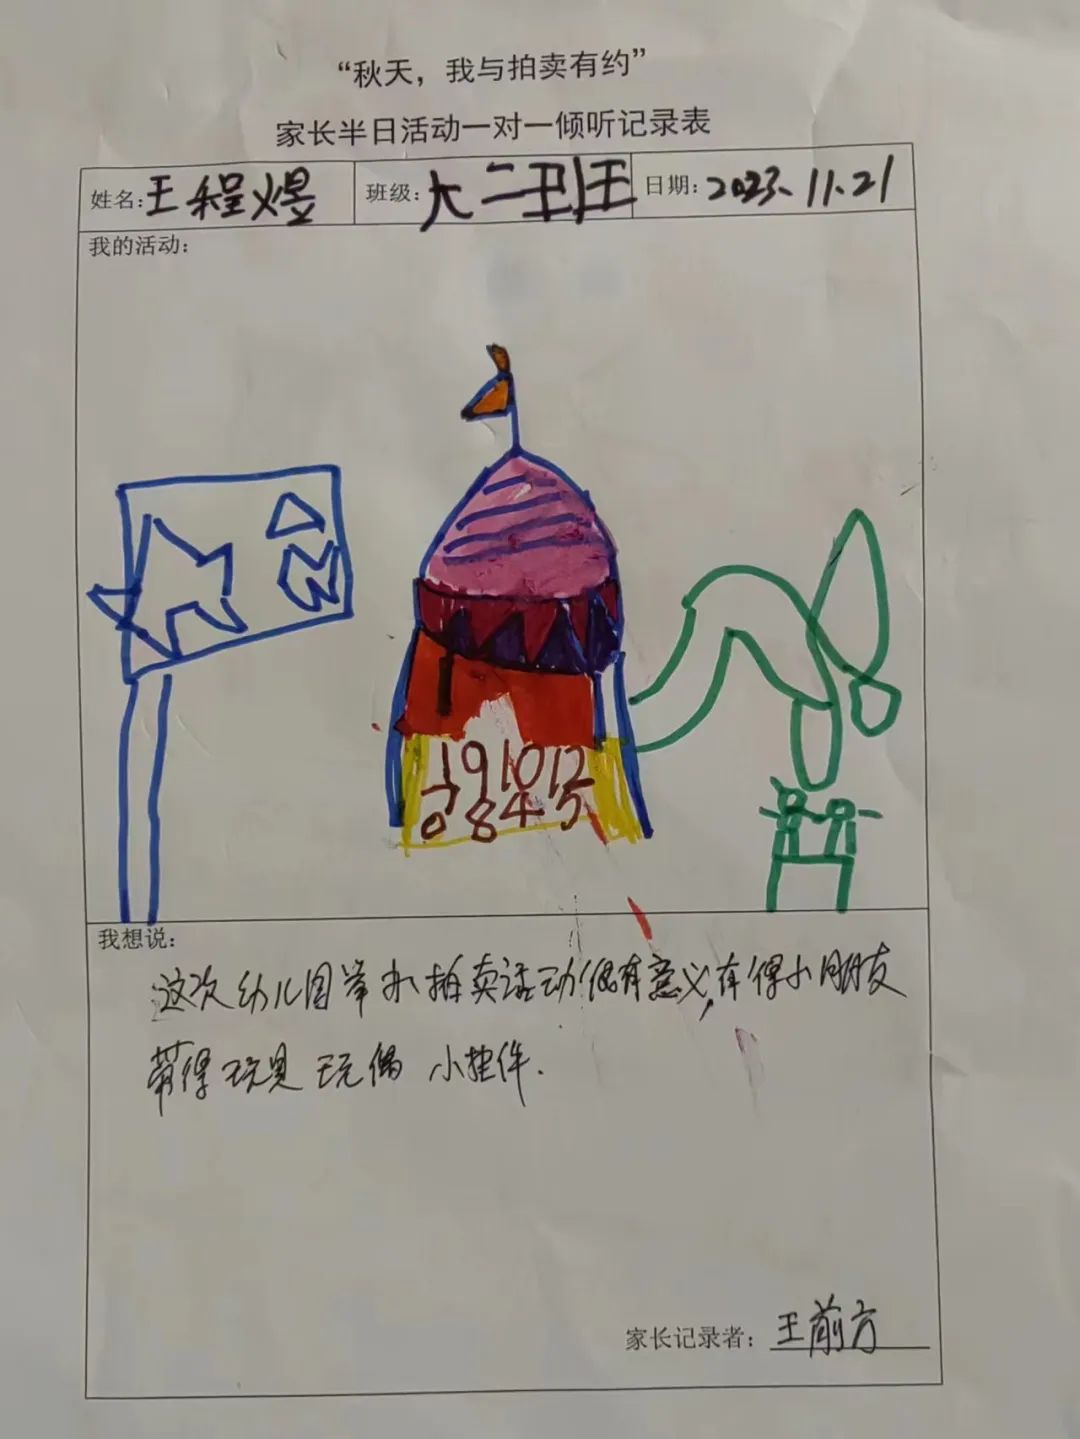 “秋天，我与拍卖有约”
家长半日活动一对一倾听记录表
姓名:王程煜 班级:大二班 日期:2023.11.21
我的活动:
19 10 12
7 8 4 5
0
我想说:
这次幼儿园举办拍卖活动很有意义,有得小朋友
带得玩具 玩偶 小挂件.
家长记录者: 王前方